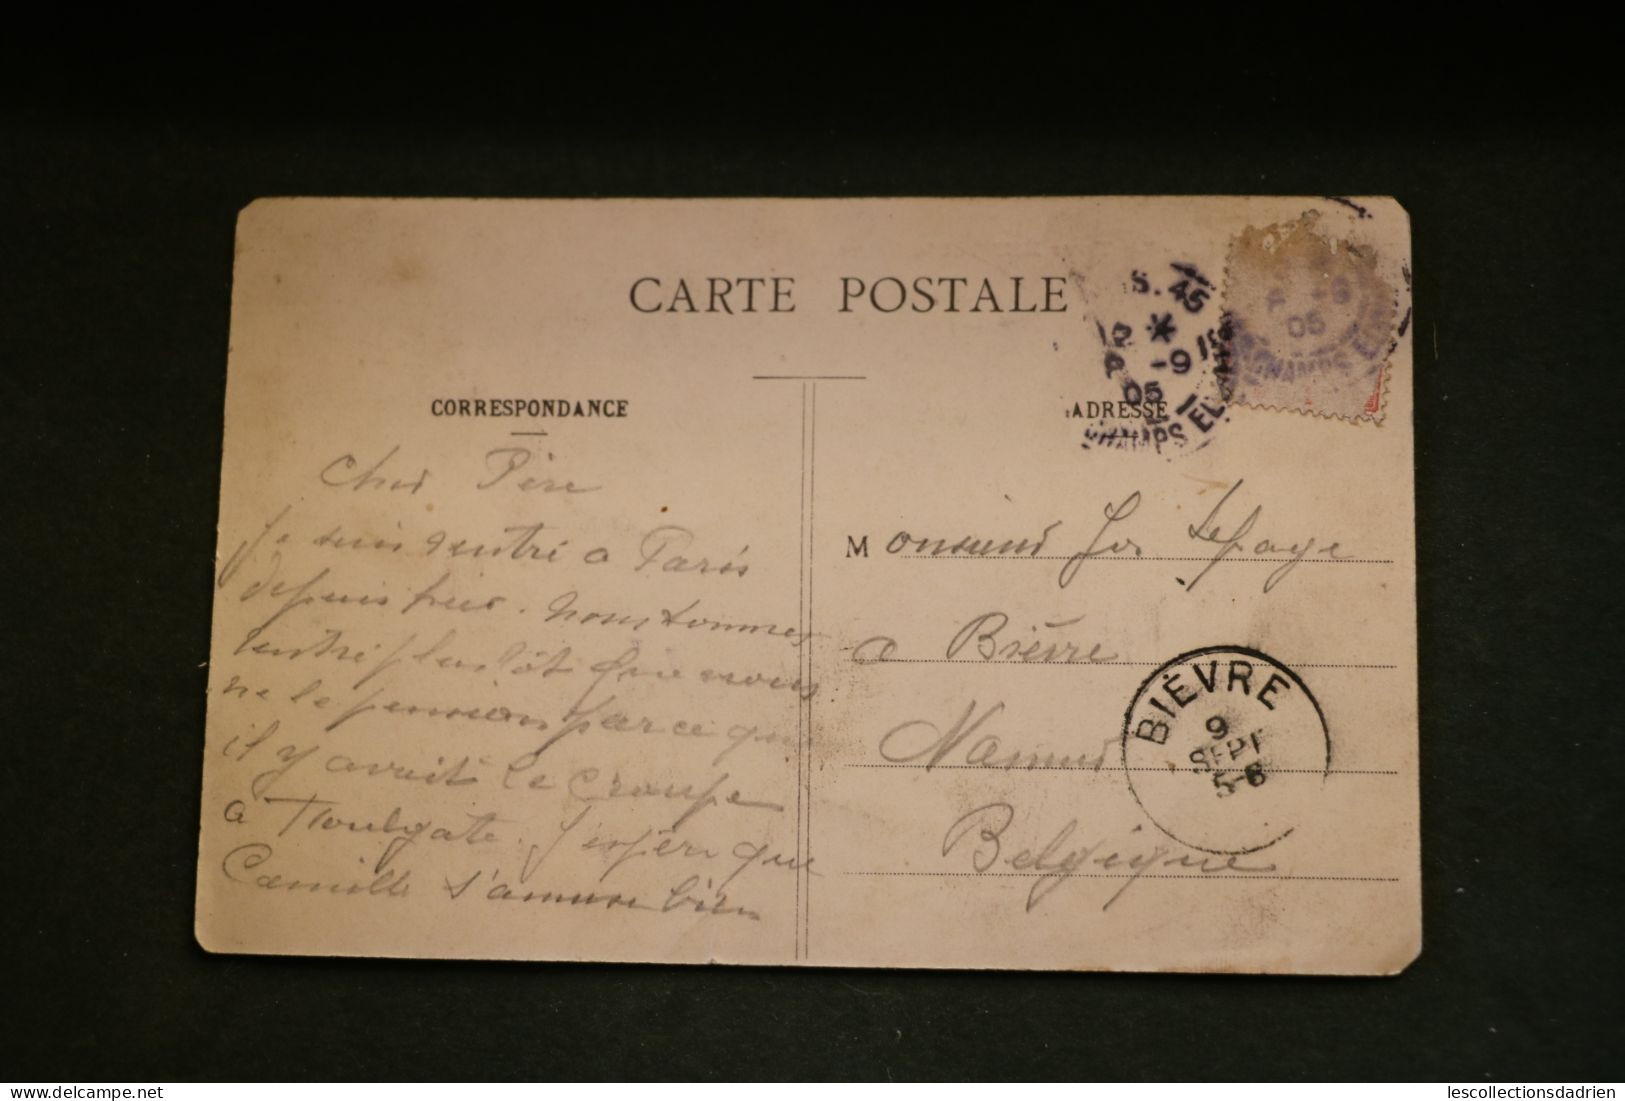 CARTE POSTALE
CORRESPONDANCE
ADRESSE
Cher Père
Je suis rentré a Paris
depuis hier. Nous sommes
rentré plustôt que nous
ne le pension parce que
il y avait le croupe
a Houlgate. J'espère que
Camille s'amuse bien
Monsieur Jos Lepage
a Bièvre
Namur
Belgique
S. 45
* 
-9
05
CHAMPS ELYSÉES
-9
05
CHAMPS ELYSÉES
BIÈVRE
9
SEPT
5-6
lescollectionsdadrien